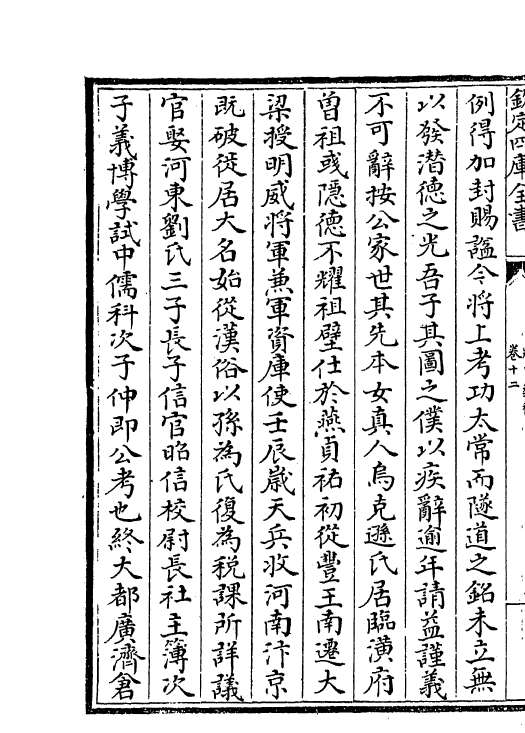 欽定四庫全書
卷十二
例得加封賜謚今將上考功太常而隧道之銘未立無
以發潜德之光吾子其圖之僕以疾辭逾年請益謹義
不可辭按公家世其先本女真人烏克遜氏居臨潢府
曽祖彧隠德不耀祖璧仕於燕貞祐初從豐王南遷大
梁授明威将軍兼軍資庫使壬辰嵗天兵收河南汴京
既破徙居大名始從漢俗以孫為氏復為税課所詳議
官娶河東劉氏三子長子信官昭信校尉長社主簿次
子義博學試中儒科次子仲即公考也終大都廣濟倉